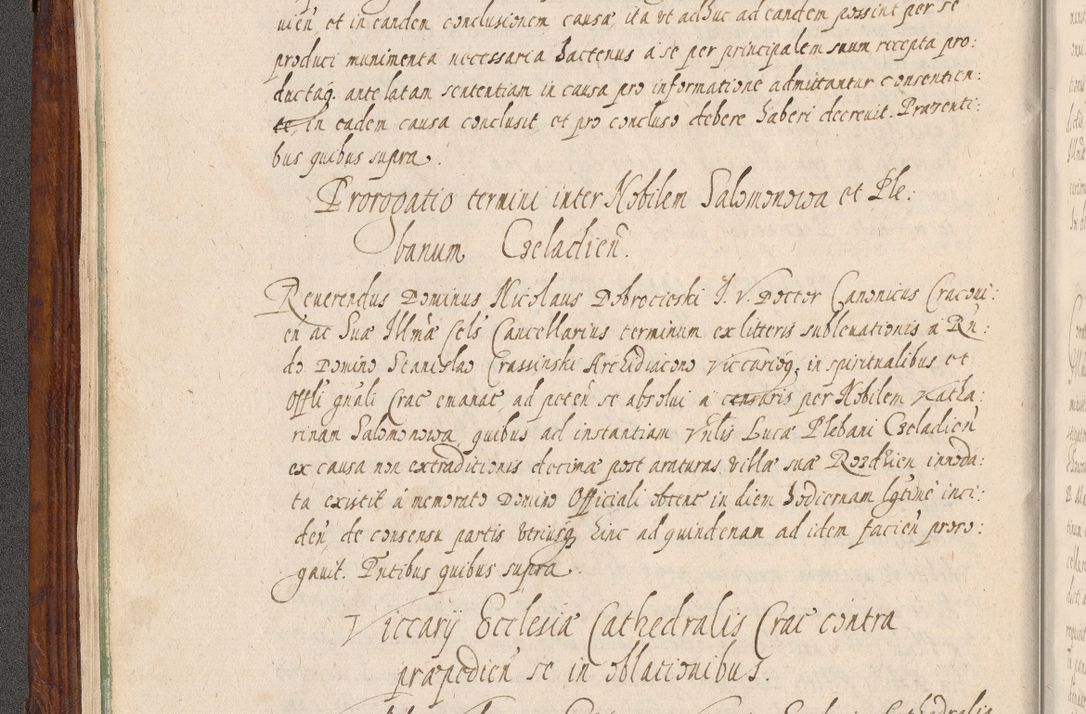 uień et in eandem conclusionem causæ ita vt adhuc ad eandem possint per se
produci munimenta necessaria hactenus a se per principalem suum recepta pro:
ductaq. ante latam sententiam in causa pro informatione admittantur consentien:
te, in eadem causa conclusit et pro concluso debere haberi decreuit. Præsenti:
bus quibus supra.
Prorogatio termini inter Nobilem Salomonowa et Ple:
banum Czeladień.
Reuerendus Dominus Nicolaus Dobrocieski J. V. Doctor Canonicus Cracoui:
en ac Suæ Illmæ Cels Cancellarius terminum ex litteris subleuationis a Rn:
do Domino Stanislao Crassinski Archidiacono Viccarioq. in spiritualibus et
Offli gnali Crac emanat, ad peteń se absolui a censuris per Nobilem Katha:
rinam Salomonowa, quibus ad instantiam Vnlis Lucæ Plebani Czeladień
ex causa non extraditionis decimæ post araturas villæ suæ Rozdzień innoda:
ta existit a memorato Domino Officiali obtent in diem hodiernam lgtime inci:
deń de consensu partis vtriusq hinc ad quindenam ad idem facień proro:
gauit. Pntibus quibus supra.
Viccarij Ecclesiæ Cathedralis Crac contra
præpedień se in oblationibus.